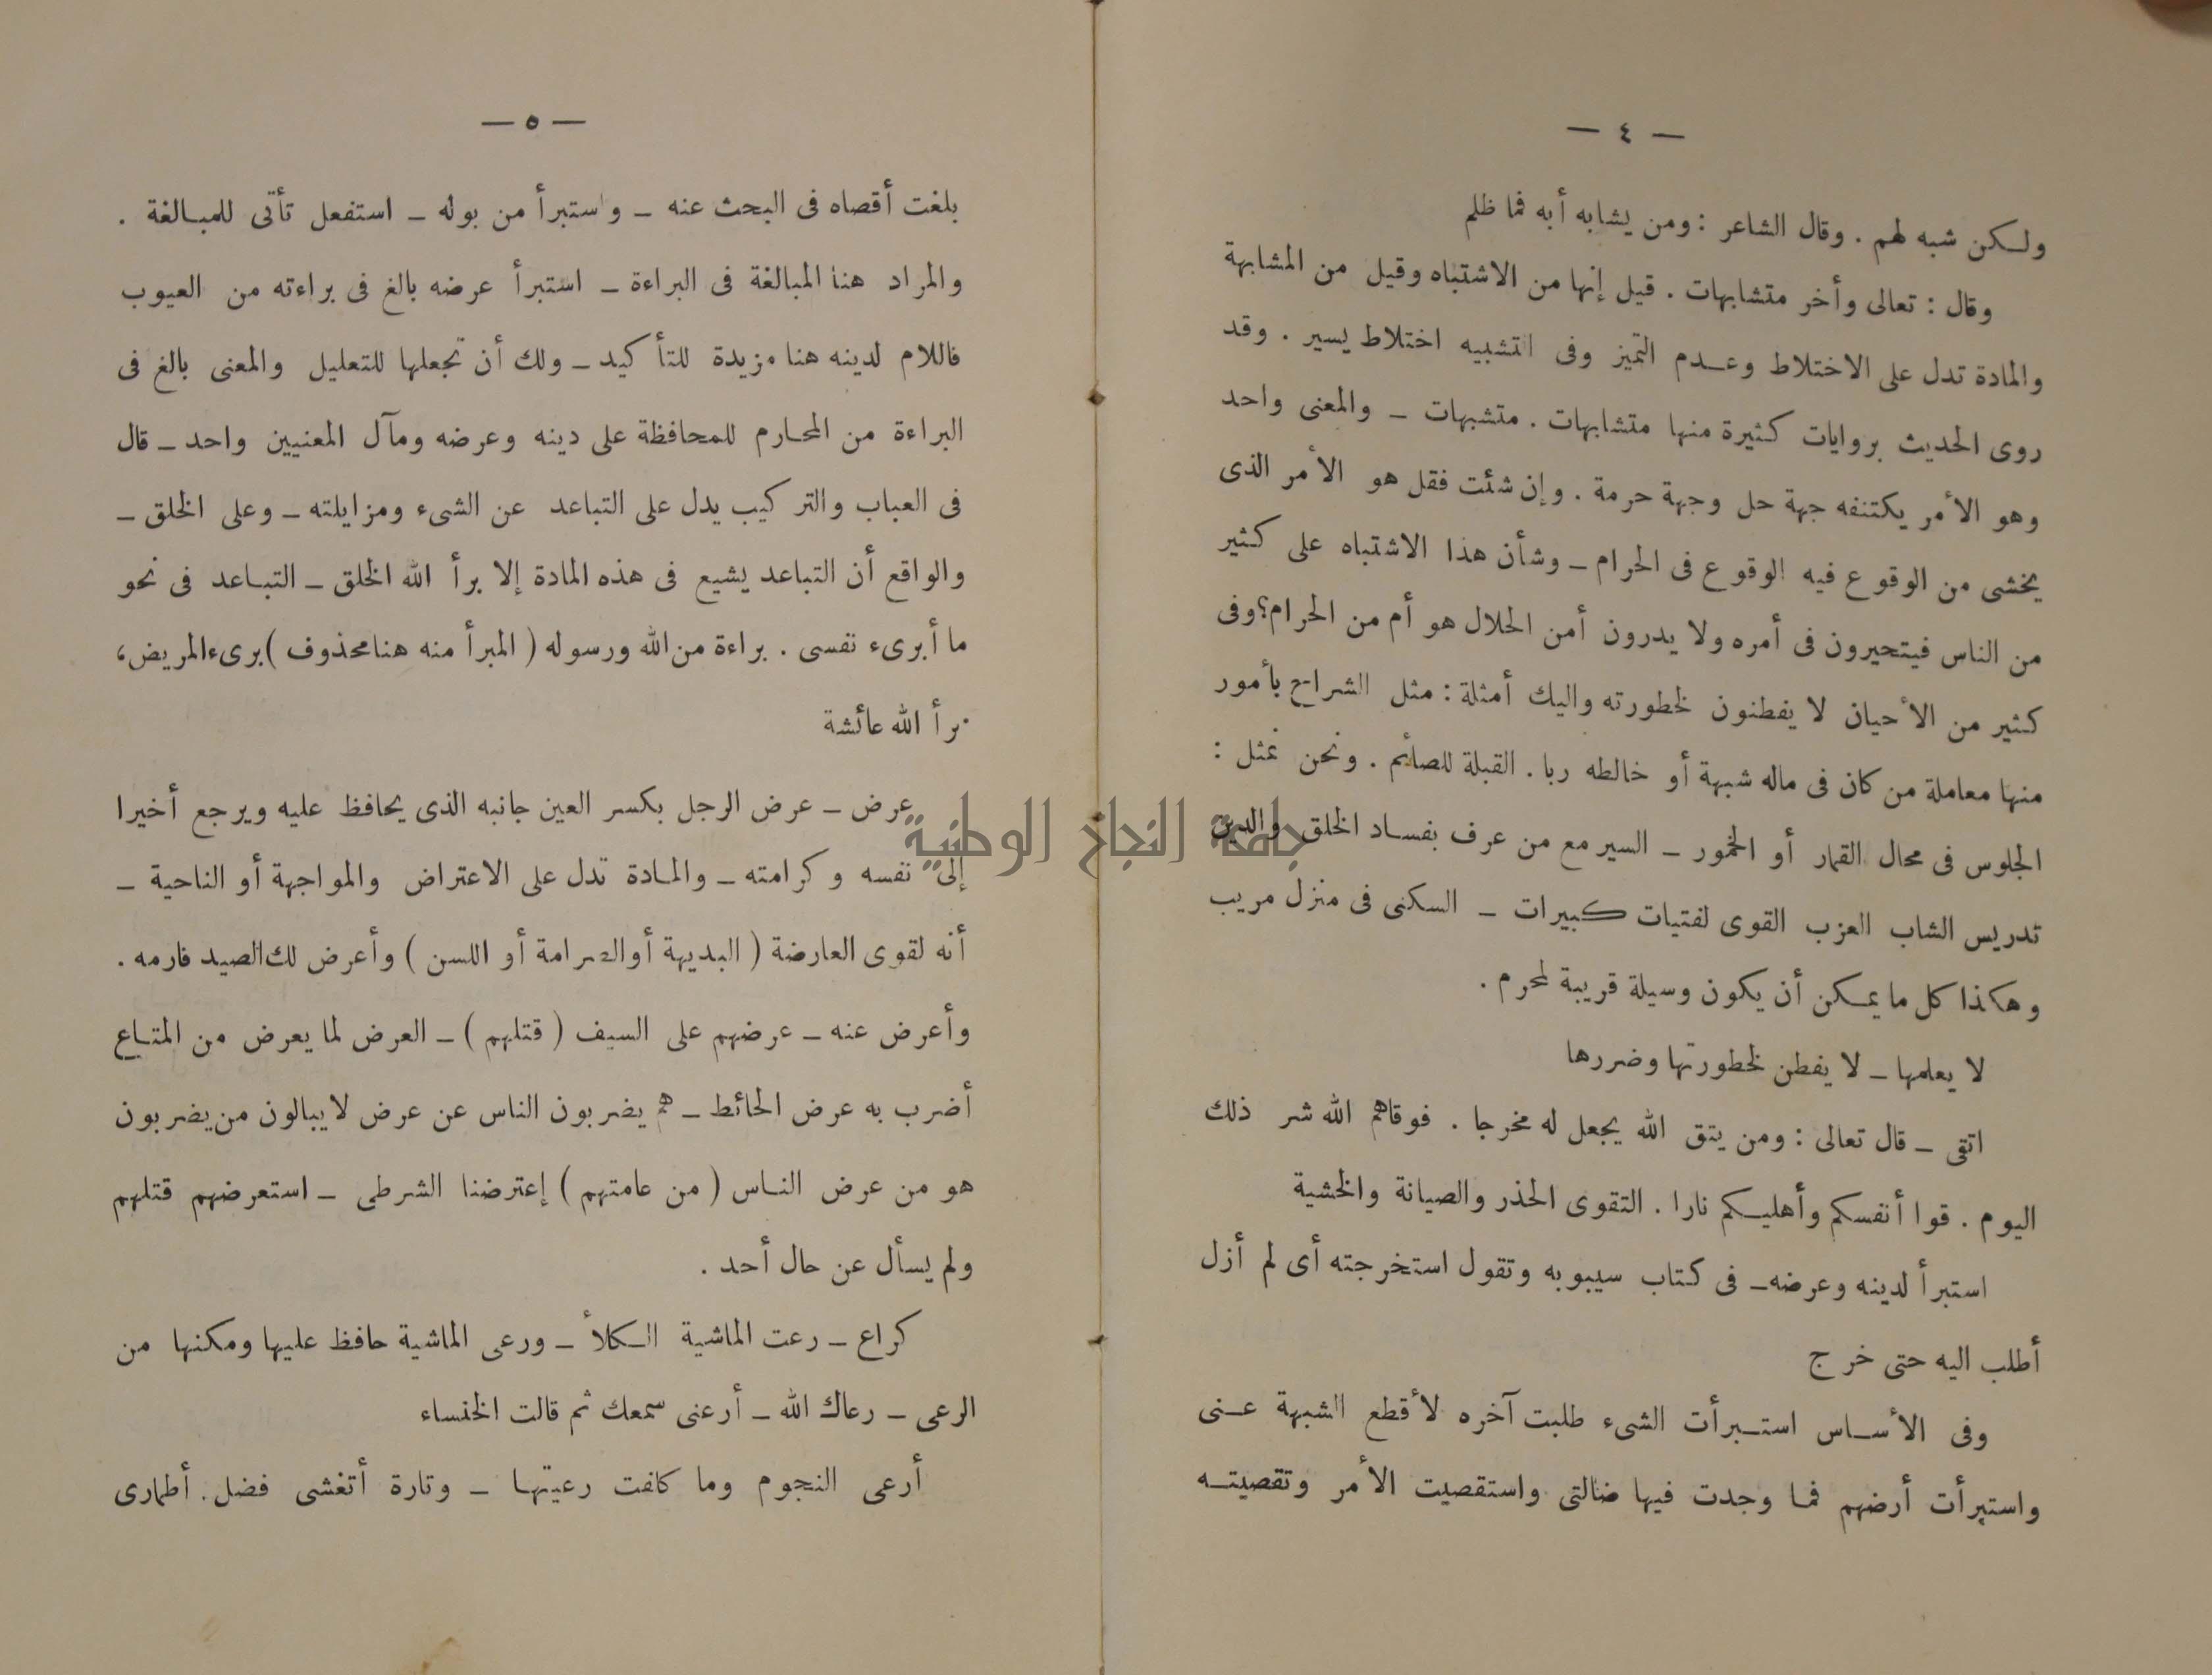 — ٤ —
ولكن شبه لهم . وقال الشاعر : ومن يشابه أبه فما ظلم
وقال : تعالى وأخر متشابهات . قيل إنها من الاشتباه وقيل من المشابهة
والمادة تدل على الاختلاط وعدم التميز وفى التشبيه اختلاط يسير . وقد
روى الحديث بروايات كثيرة منها متشابهات . متشبهات – والمعنى واحد
وهو الأمر يكتنفه جهة حل وجهة حرمة . وإن شئت فقل هو الأمر الذى
يخشى من الوقوع فيه الوقوع فى الحرام – وشأن هذا الاشتباه على كثير
من الناس فيتحيرون فى أمره ولا يدرون أمن الحلال هو أم من الحرام؟ وفى
كثير من الأحيان لا يفطنون لخطورته واليك أمثلة : مثل الشراح بأمور
منها معاملة من كان فى ماله شبهة أو خالطه ربا . القبلة للصائم . ونحن نمثل :
الجلوس فى محال القمار أو الخمور – السير مع من عرف بفساد الخلق والدين
تدريس الشاب العزب القوى لفتيات كبيرات – السكنى فى منزل مريب
وهكذا كل ما يمكن أن يكون وسيلة قريبة لمحرم .
لا يعلمها – لا يفطن لخطورتها وضررها
اتقى – قال تعالى : ومن يتق الله يجعل له مخرجا . فوقاهم الله شر ذلك
اليوم . قوا أنفسكم وأهليكم نارا . التقوى الحذر والصيانة والخشية
استبرأ لدينه وعرضه – فى كتاب سيبويه وتقول استخرجته أى لم أزل
أطلب اليه حتى خرج
وفى الأساس استبرأت الشىء طلبت آخره لأقطع الشبهة عنى
واستبرأت أرضهم فما وجدت فيها ضالتى واستقصيت الأمر وتقصيته
— ٥ —
بلغت أقصاه فى البحث عنه – واستبرأ من بوله – استفعل تأتى للمبالغة .
والمراد هنا المبالغة فى البراءة – استبرأ عرضه بالغ فى براءته من العيوب
فاللام لدينه هنا مزيدة للتأكيد – ولك أن تجعلها للتعليل والمعنى بالغ فى
البراءة من المحارم للمحافظة على دينه وعرضه ومآل المعنيين واحد – قال
فى العباب والتركيب يدل على التباعد عن الشىء ومزايلته – وعلى الخلق –
والواقع أن التباعد يشيع فى هذه المادة إلا برأ الله الخلق – التباعد فى نحو
ما أبرىء نفسى . براءة من الله ورسوله ( المبرأ منه هنا محذوف ) برىء المريض،
برأ الله عائشة
عرض – عرض الرجل بكسر العين جانبه الذى يحافظ عليه ويرجع أخيرا
إلى نفسه وكرامته – والمادة تدل على الاعتراض والمواجهة أو الناحية –
أنه لقوى العارضة ( البديهة أو الصرامة أو اللسن ) وأعرض لك الصيد فارمه .
وأعرض عنه – عرضهم على السيف ( قتلهم ) – العرض لما يعرض من المتاع
أضرب به عرض الحائط – هم يضربون الناس عن عرض لا يبالون من يضربون
هو من عرض الناس ( من عامتهم ) إعترضنا الشرطى – استعرضهم قتلهم
ولم يسأل عن حال أحد .
كراع – رعت الماشية الكلأ – ورعى الماشية حافظ عليها ومكنها من
الرعى – رعاك الله – أرعنى سمعك ثم قالت الخنساء
أرعى النجوم وما كلفت رعيتها – وتارة أتغشى فضل أطمارى
جامعة النجاح الوطنية